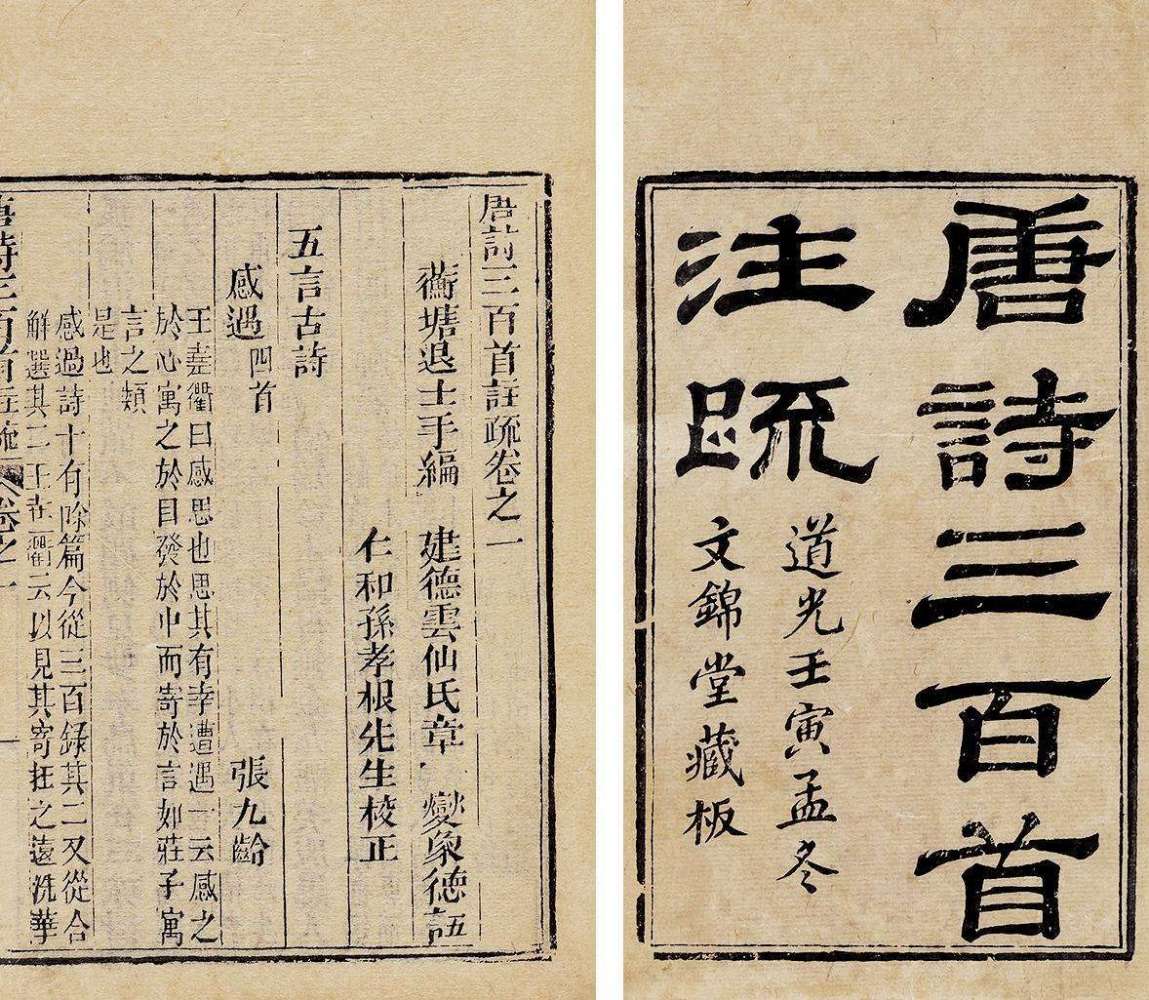 唐詩三百首
注疏
道光壬寅孟冬
文錦堂藏板
唐詩三百首註疏卷之一
蘅塘退士手編 建德雲仙氏章 燮象德註
仁和孫孝根先生校正
五言古詩
感遇四首 張九齡
王堯衢曰感思也思其有幸遭遇一云感之
於心寓之於目發於中而寄於言如莊子寓
言之類
是也
感遇詩十有餘篇今從三百錄其二又從合
解選其二王堯衢云以見其寄託之遠洗華
唐詩三百首註疏 卷之一 一